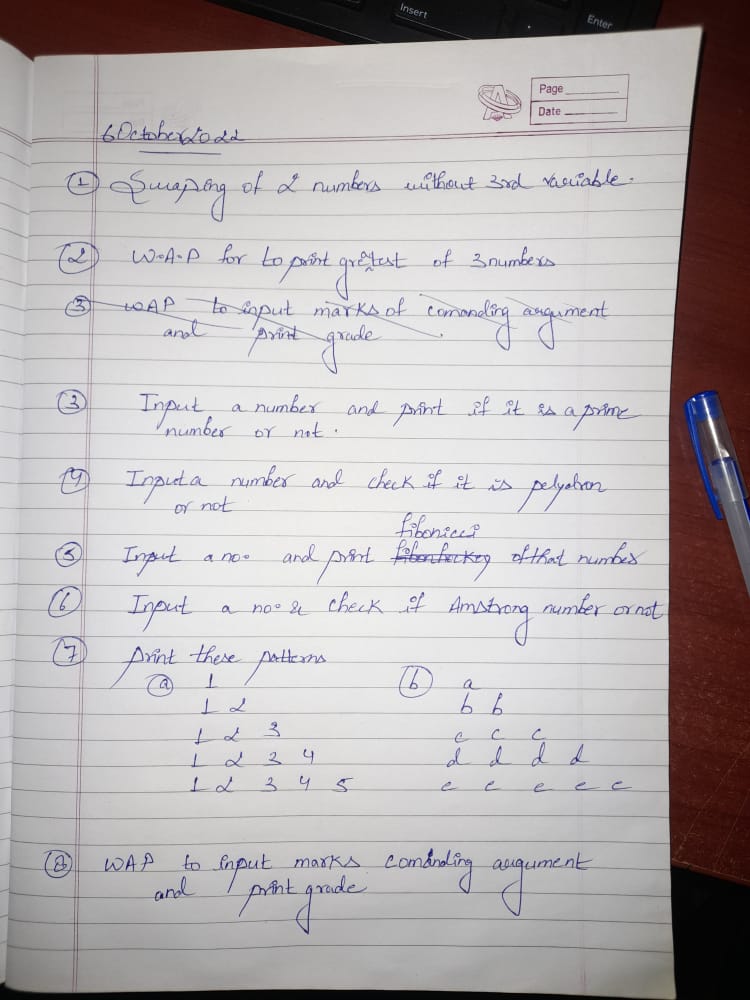 Insert
Enter
Page
Date
6 October 2022
① Swaping of 2 numbers without 3rd variable.
② W.A.P for to print gretest of 3 numbers
③ WAP to input marks of comanding argument
and print grade
③ Input a number and print if it is a prime
number or not.
④ Input a number and check if it is pelydrom
or not
fibonicci
⑤ Input a no. and print of that number
⑥ Input a no. & check if Amstrong number or not
⑦ print these patterns
ⓐ 1 ⓑ a
1 2 b b
1 2 3 c c c
1 2 3 4 d d d d
1 2 3 4 5 e e e e e
⑧ WAP to input marks comanding argument
and print grade